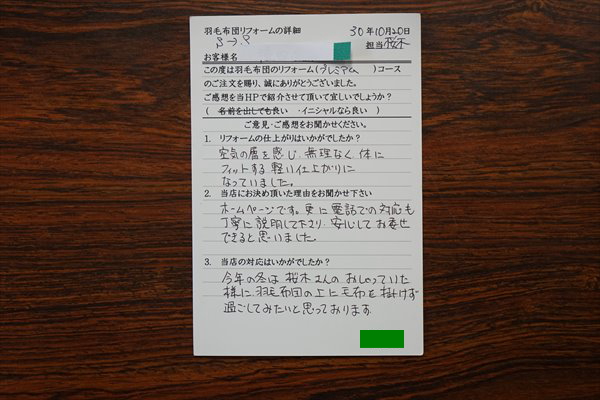 羽毛布団リフォームの詳細 30年10月20日
S→P 担当 桜木
お客様名
この度は羽毛布団のリフォーム(プレミアム)コース
のご注文を賜り、誠にありがとうございました。
ご感想を当HPで紹介させて頂いて宜しいでしょうか?
( 名前を出しても良い ・イニシャルなら良い )
ご意見・ご感想をお聞かせください。
1. リフォームの仕上がりはいかがでしたか?
空気の層を感じ、無理なく体に
フィットする軽い仕上がりに
なっていました。
2. 当店にお決め頂いた理由をお聞かせ下さい
ホームページです。更に電話での対応も
丁寧に説明して下さり、安心してお任せ
できると思いました。
3. 当店の対応はいかがでしたか?
今年の冬は桜木さんのおしゃっていた
様に、羽毛布団の上に毛布を掛けず
過ごしてみたいと思っております。